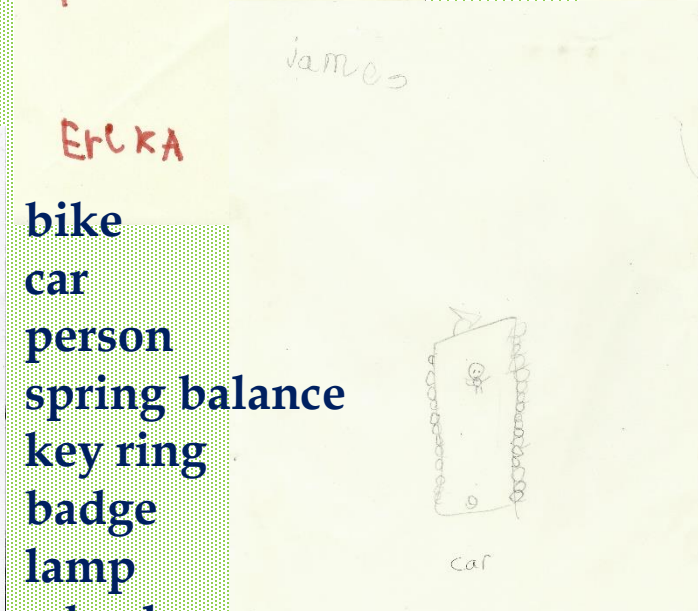 james
ErikA
bike
car
person
spring balance
key ring
badge
lamp
car